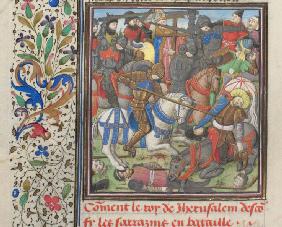 Com̄ent le roy de Jherusalem desco
fy les sarrazins en bataille